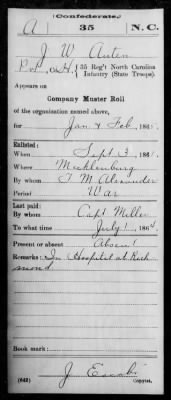 (Confederate.)
A 35 N.C.
J W Auten
Pvt, Co. H, 35 Reg't North Carolina
Infantry (State Troops).
Appears on
Company Muster Roll
of the organization named above,
for Jan & Feb, 186
Enlisted:
When Sept 3, 186
Where Mecklenburg
By whom T. M. Alexander
Period War
Last paid:
By whom Capt Miller
To what time July 1, 1864
Present or absent Absent
Remarks: In Hospital at Rich
mond
Book mark:
(642) J Escobi Copyist.